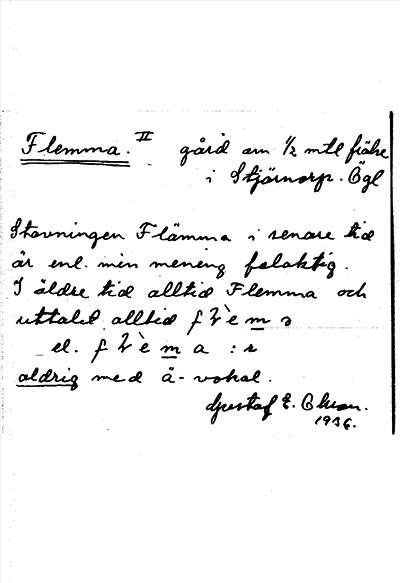 Flemma. II gård om 1/2 mtl frälse
i Stjärnorp. Ögl
Stavningen Flämma i senare tid
är enl. min mening felaktig.
I äldre tid alltid Flemma och
uttalet alltid
el.
aldrig med ä-vokal.
Gustaf E. Olsson.
1936.